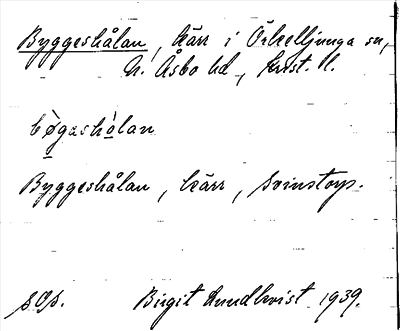 Byggeshålan, kärr i Örkelljunga sn,
N. Åsbo hd, Krist. l.
Byggeshålan, kärr, Svinstorp.
Birgit Lundkvist 1939.